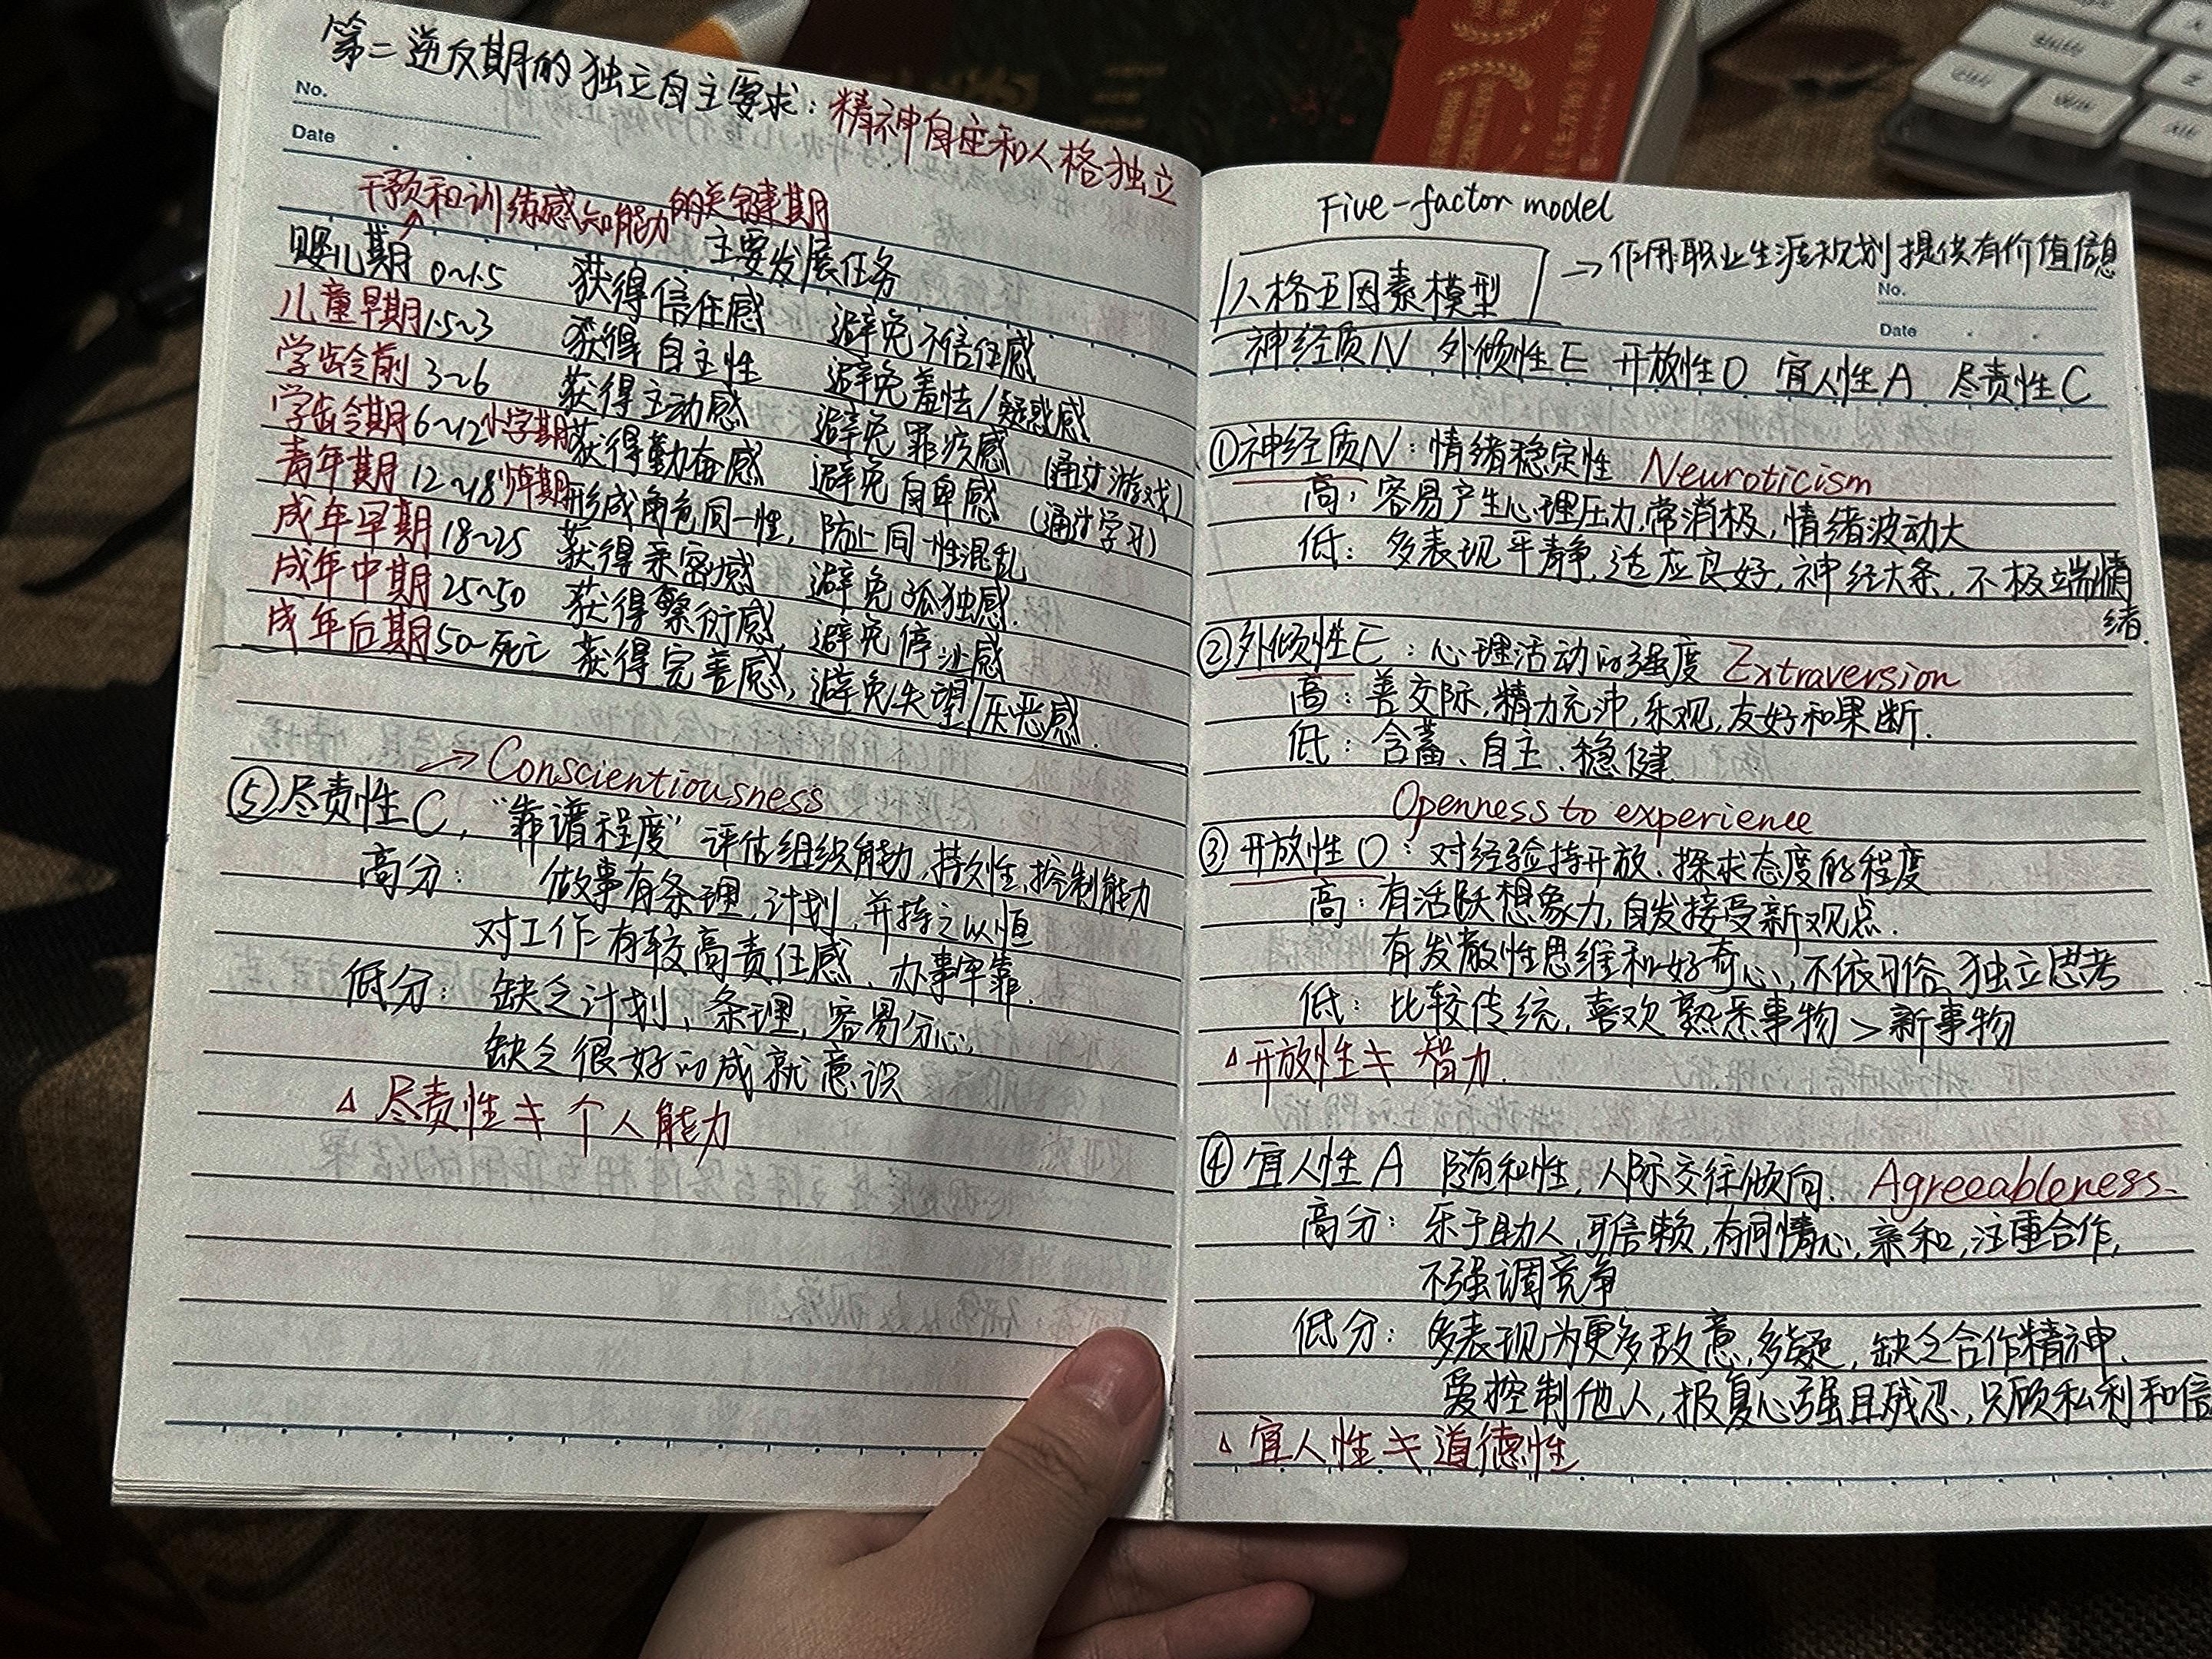 第二逆反期的独立自主要求：精神自主和人格独立
No.
Date
干预和训练感知能力的关键期
婴儿期 0~1.5 主要发展任务
获得信任感 避免不信任感
儿童早期 1.5~3 获得自主性 避免羞怯/疑惑感
学龄前 3~6 获得主动感 避免罪疚感 (通过游戏)
学龄期 6~12 小学期 获得勤奋感 避免自卑感 (通过学习)
青年期 12~18 少年期 形成角色同一性, 防止同一性混乱
成年早期 18~25 获得亲密感 避免孤独感.
成年中期 25~50 获得繁衍感, 避免停滞感
成年后期 50~死亡 获得完善感, 避免失望/厌恶感.
→ Conscientiousness
⑤尽责性C, “靠谱程度” 评估组织能力, 持久性, 控制能力
高分: 做事有条理, 计划, 并持之以恒
对工作有较高责任感、办事牢靠.
低分: 缺乏计划、条理, 容易分心,
缺乏很好的成就意识
△ 尽责性 ≠ 个人能力
Five-factor model
人格五因素模型 → 作用:职业生涯规划提供有价值信息
No.
Date
神经质N 外倾性E 开放性O 宜人性A 尽责性C
①神经质N: 情绪稳定性 Neuroticism
高: 容易产生心理压力, 常消极, 情绪波动大
低: 多表现平静, 适应良好, 神经大条, 不极端情
绪.
②外倾性E: 心理活动的强度 Extraversion
高: 善交际, 精力充沛, 乐观, 友好和果断.
低: 含蓄、自主、稳健
Openness to experience
③开放性O: 对经验持开放、探求态度的程度
高: 有活跃想象力, 自发接受新观点.
有发散性思维和好奇心, 不依习俗、独立思考
低: 比较传统, 喜欢熟悉事物 > 新事物
△开放性 ≠ 智力.
④宜人性A 随和性, 人际交往倾向. Agreeableness.
高分: 乐于助人, 可信赖, 有同情心, 亲和, 注重合作,
不强调竞争
低分: 多表现为更多敌意, 多疑, 缺乏合作精神、
爱控制他人, 报复心强且残忍, 只顾私利和信
△ 宜人性 ≠ 道德性